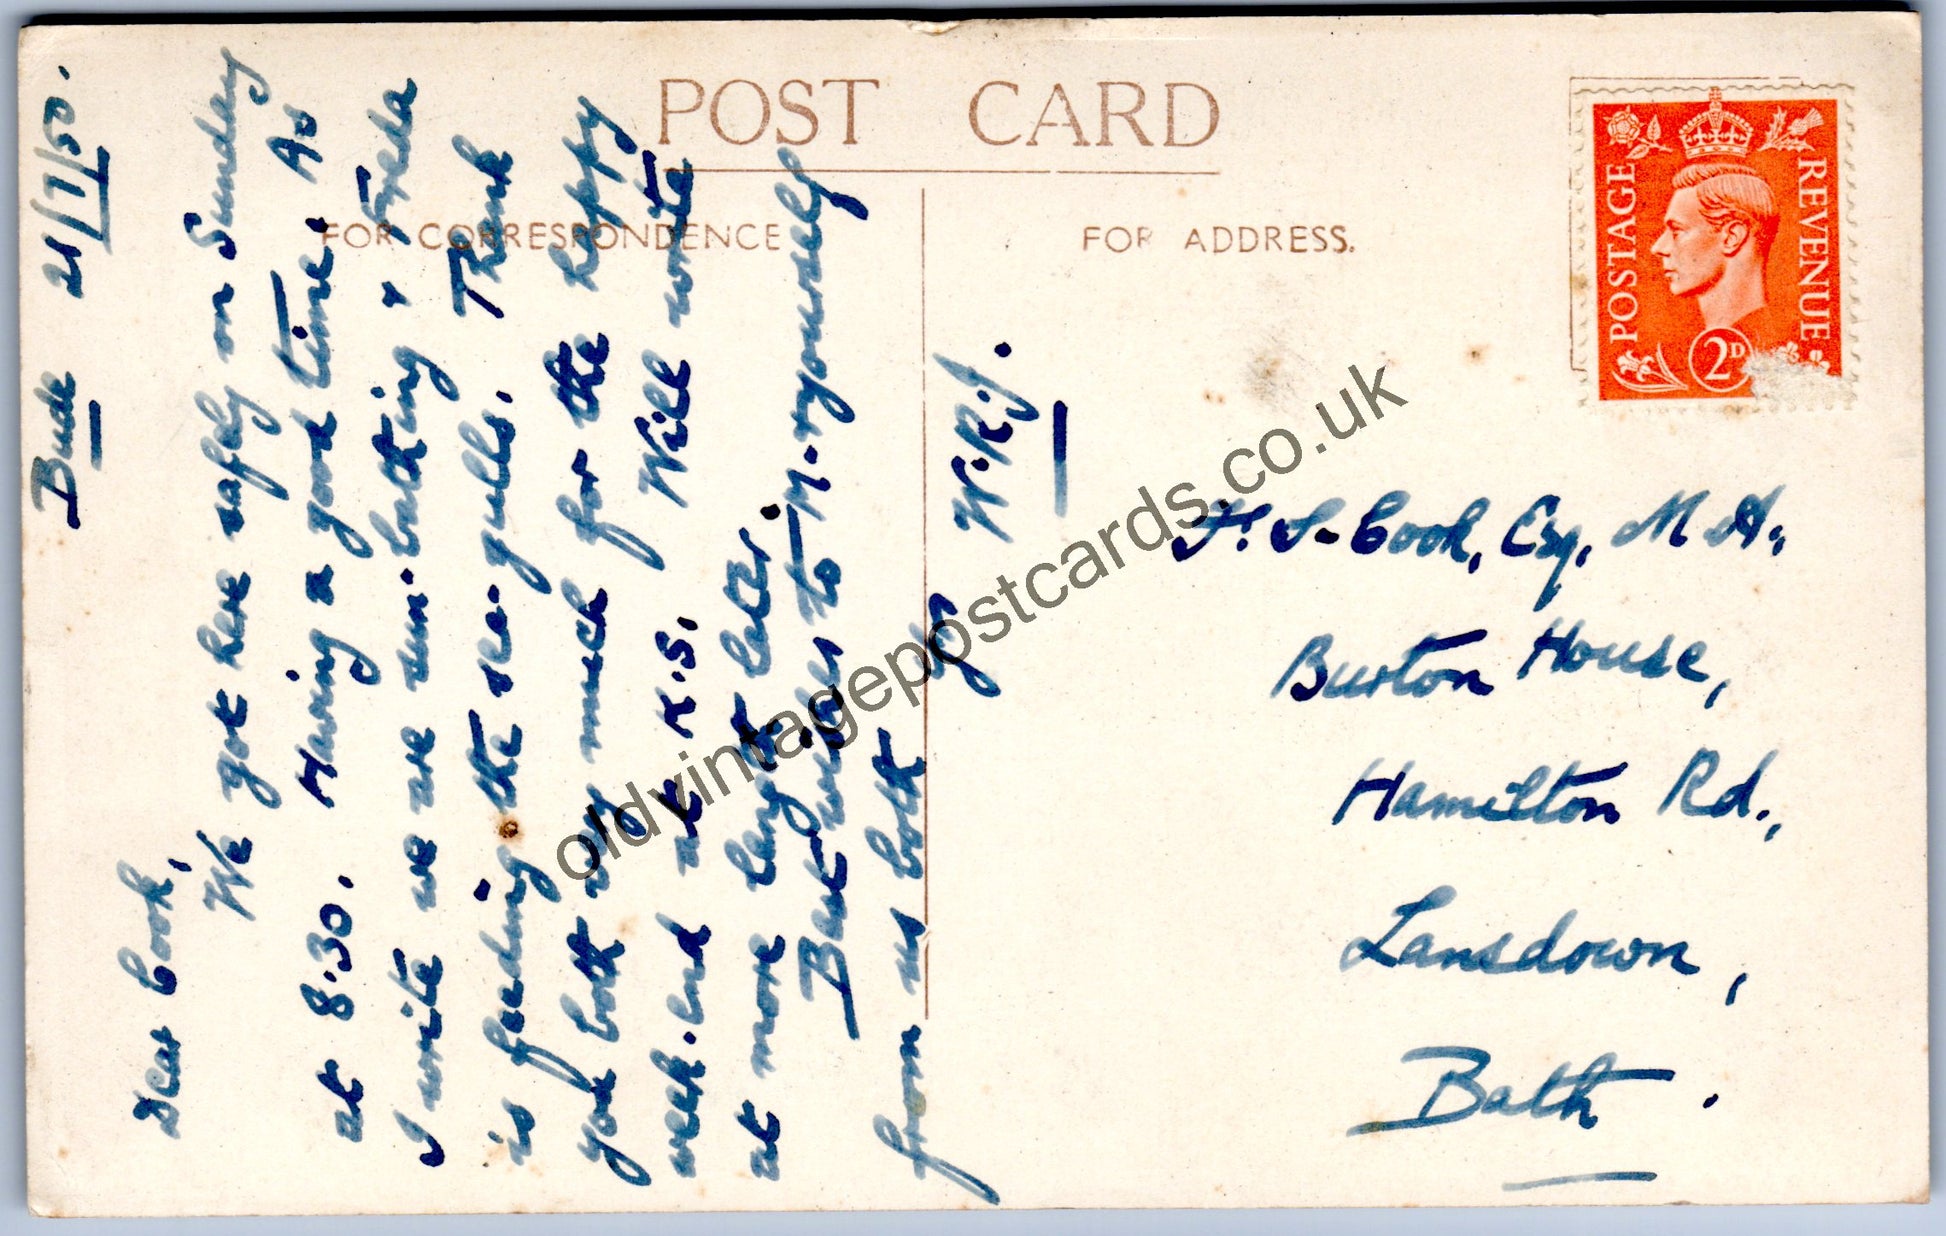 POST CARD
FOR CORRESPONDENCE
FOR ADDRESS.
POSTAGE
REVENUE
2D
Bude 21/7/50.
Dear Cook,
We got here safely on Sunday
at 8.30. Having a good time. As
I write we are sun-bathing & Freda
is feeding the sea-gulls. Thank
you both very much for the happy
week-end at K.S. Will write
at more length later.
Best wishes to M. & yourself
from us both
W.R.J.
F. S. Cook, Esq, M A.,
Burton House,
Hamilton Rd.,
Lansdown,
Bath.
oldvintagepostcards.co.uk